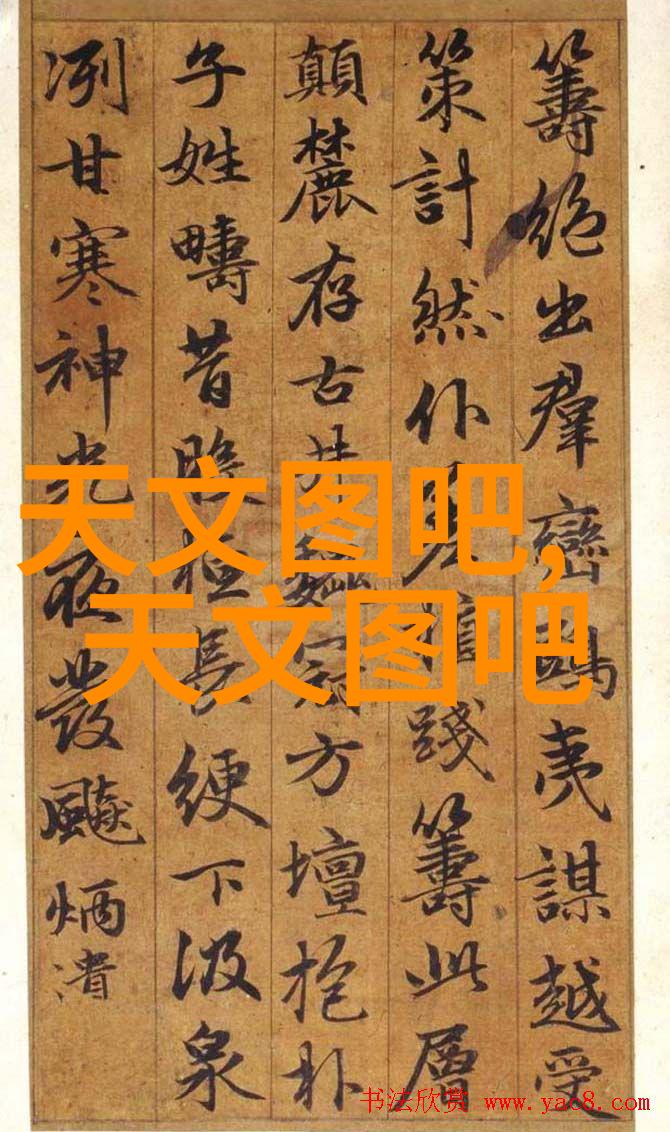 籌絕出羣巒夷謀越受
策計然仆踐籌此層
顛麓存古井方壇抱朴
子姓疇昔長綆下汲泉
冽甘寒神光發飈炳潰
天文图吧,
天文图吧
书法欣赏 www.yac8.com